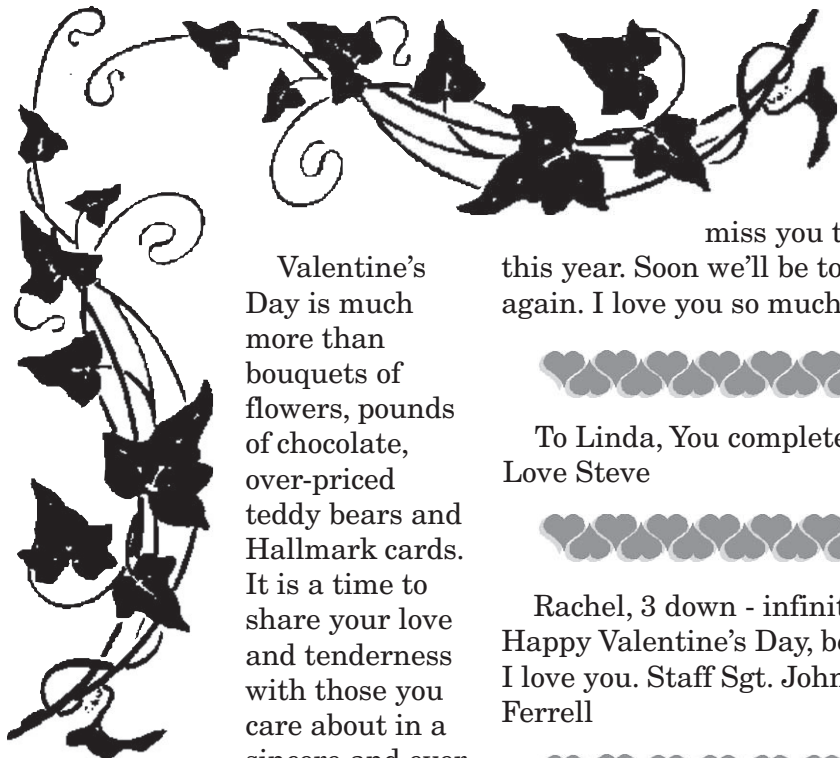 Valentine's
Day is much
more than
bouquets of
flowers, pounds
of chocolate,
over-priced
teddy bears and
Hallmark cards.
It is a time to
share your love
and tenderness
with those you
care about in a
sincere and
miss you
this year. Soon we'll be
again. I love you so much
To Linda, You complete
Love Steve
Rachel, 3 down -
Happy Valentine's Day,
I love you. Staff Sgt. John
Ferrell